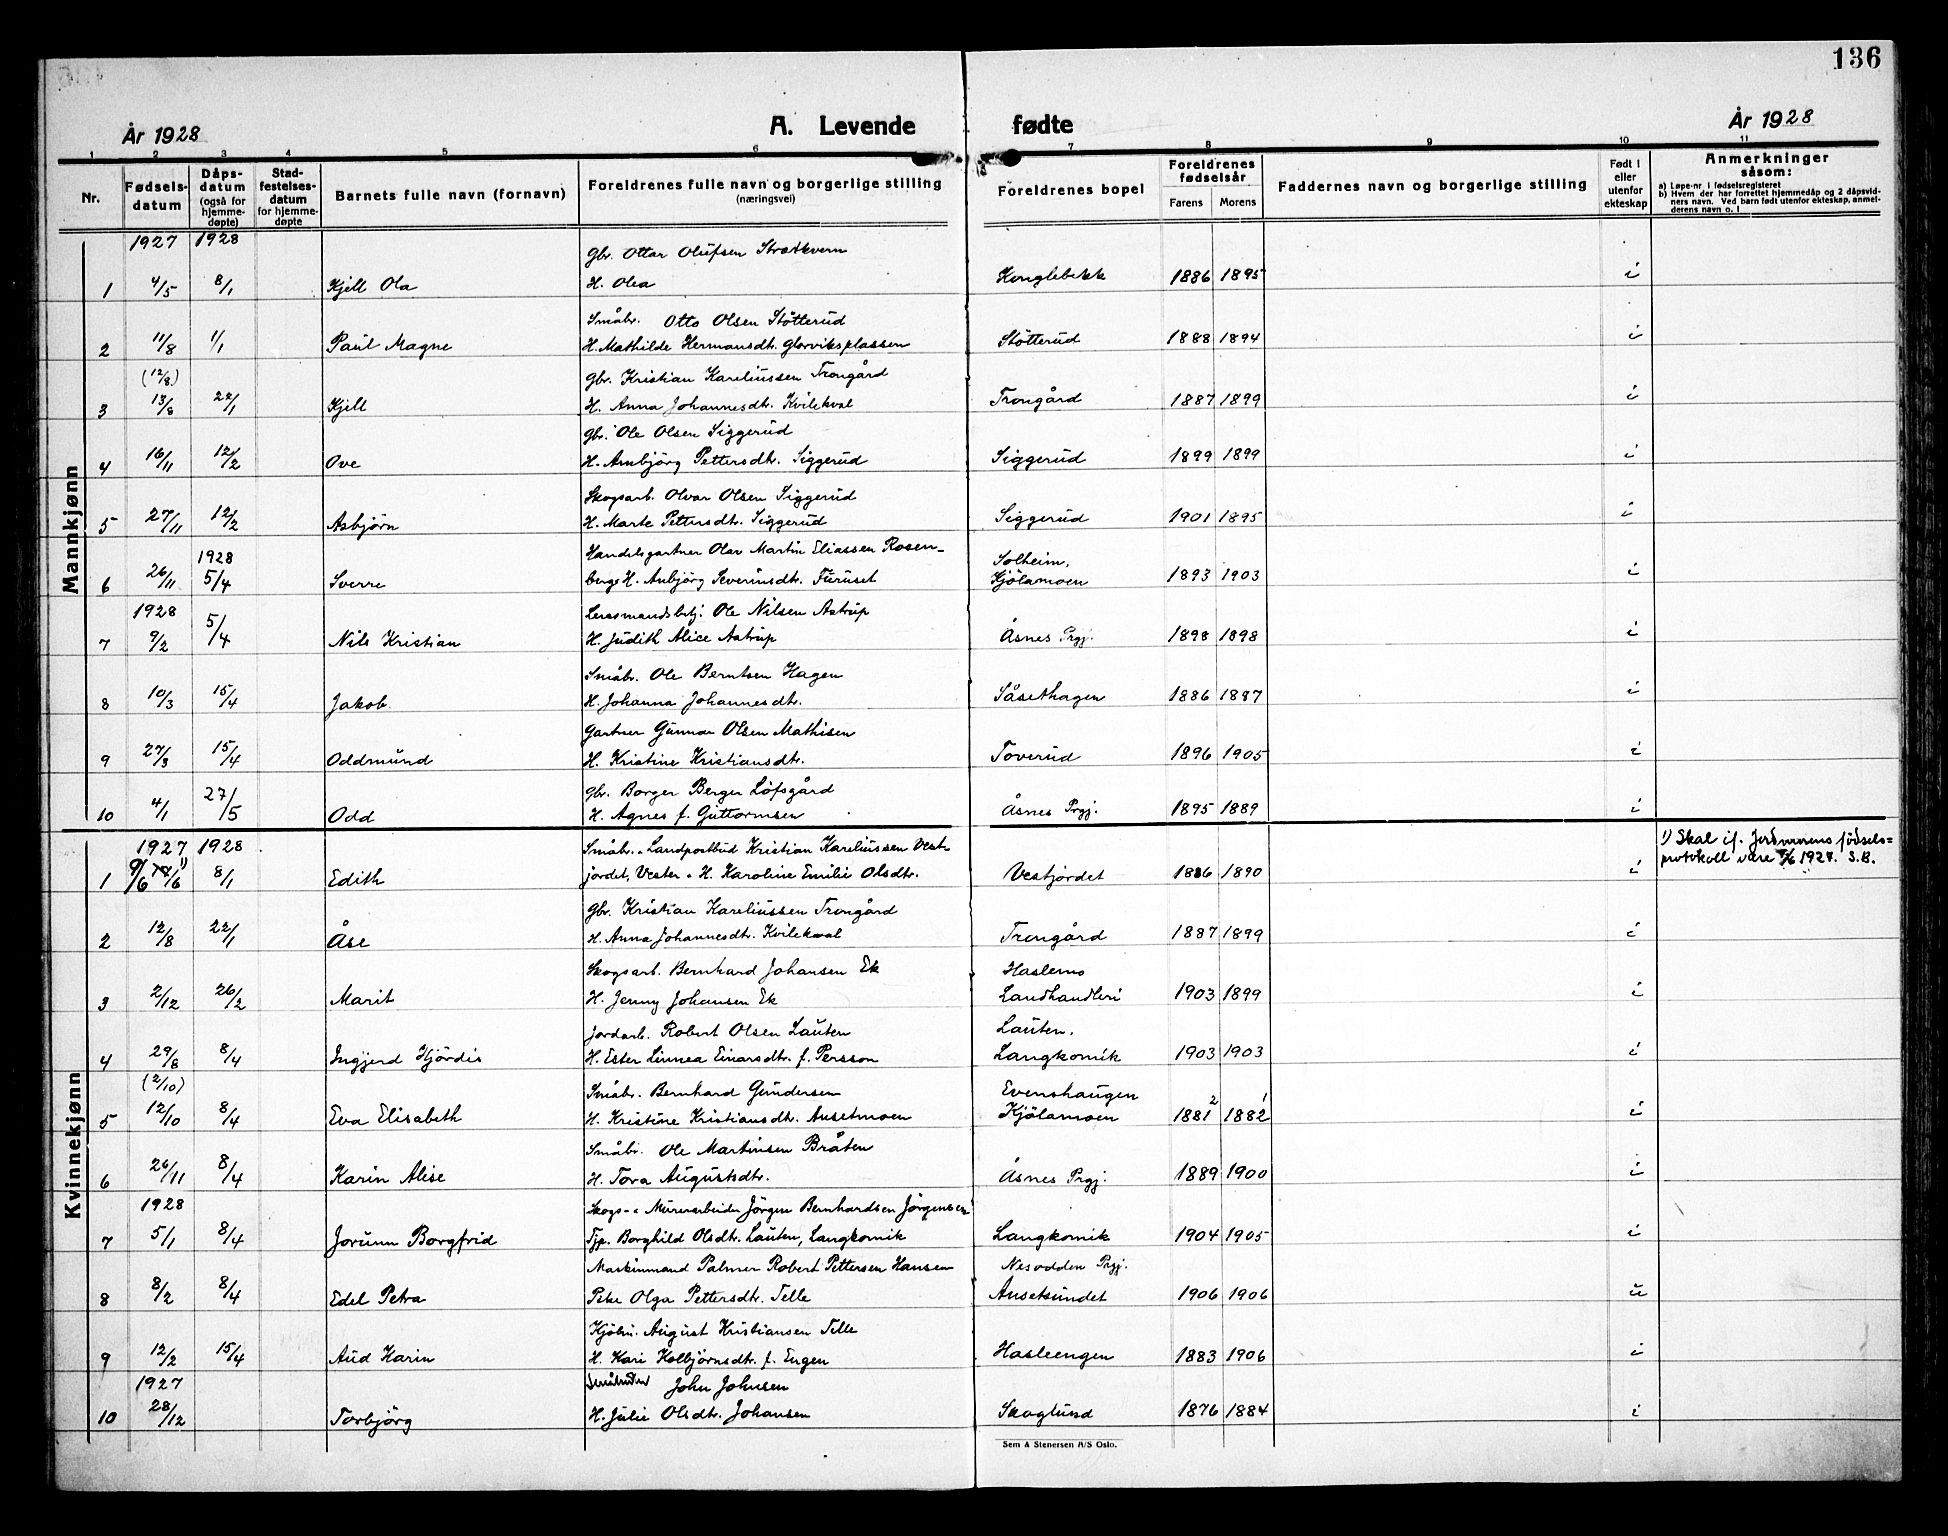 136
År 1928 A. Levende fødte År 1928
1 2 3 4 5 6 7 8 9 10 11
Nr. Fødsels-datum Dåps-datum (også for hjemme-døpte) Stad-festelses-datum for hjemme-døpte Barnets fulle navn (fornavn) Foreldrenes fulle navn og borgerlige stilling (næringsvei) Foreldrenes bopel Foreldrenes fødselsår Farens Morens Faddernes navn og borgerlige stilling Født i eller utenfor ekteskap Anmerkninger såsom:
a) Løpe-nr i fødselsregisteret
b) Hvem der har forrettet hjemmedåp og 2 dåpsvidners navn. Ved barn født utenfor ekteskap, anmelderens navn o. l
Mannkjønn
1927 1928 Gbr. Ottar Olufsen Strætkvern
1 4/5 8/1 Kjell Ola H. Olea Konglebekk 1886 1895 i
Småbr. Otto Olsen Støtterud
2 11/8 1/1 Paul Magne H. Mathilde Hermansdtr. Glorviksplassen Støtterud 1888 1894 i
(12/8) Gbr. Kristian Kareliussen Trongård
3 13/8 22/1 Kjell H. Anna Johannesdtr. Kvilekval Trongård 1887 1899 i
Gbr. Ole Olsen Siggerud
4 16/11 12/2 Ove H. Ambjörg Pettersdtr. Siggerud Siggerud 1899 1899 i
Skogsarb. Olvar Olsen Siggerud
5 27/11 12/2 Asbjörn H. Marte Pettersdtr. Siggerud Siggerud 1901 1895 i
1928 Handelsgartner Olav Martin Eliassen Rosen- Solheim,
6 26/11 5/4 Sverre berg H. Anbjörg Severinsdtr. Furuset Kjölamoen 1893 1903 i
1928 Lensmandsbetj. Ole Nilsen Astrup
7 9/2 5/4 Nils Kristian H. Judith Alice Astrup Åsnes Prgj. 1898 1898 i
Småbr. Ole Berntsen Hagen
8 10/3 15/4 Jakob H. Johanna Johannesdtr. Såsethagen 1886 1887 i
Gartner Gunnar Olsen Mathisen
9 27/3 15/4 Oddmund H. Kristine Kristiansdtr. Toverud 1896 1905 i
Gbr. Borger Berger Löfsgård
10 4/1 27/5 Odd H. Agnes f. Guttormsen Åsnes Prgj. 1895 1889 i
Kvinnekjønn
1927 1928 Småbr. Landpostbud Kristian Kareliussen Vest- 1) Skal if. Jordmorens fødsels-
1 9/6 1) 8/1 Edith jordet, Vester H. Karoline Emilie Olsdtr. Vestjordet 1886 1890 i protokoll være 9/6 1927. S.B.
Gbr. Kristian Kareliussen Trongård
2 12/8 22/1 Åse H. Anna Johannesdtr. Kvilekval Trongård 1887 1899 i
Skogsarb. Bernhard Johansen Ek Haslemo
3 2/12 26/2 Marit H. Jenny Johansen Ek Landhandleri 1903 1899 i
Jordarb. Robert Olsen Lauten Lauten,
4 29/8 8/4 Ingjerd Hjördis H. Ester Linnea Einarsdtr. f. Persson Langkomik 1903 1903 i
(2/10) Småbr. Bernhard Gundersen Evenshaugen
5 12/10 8/4 Eva Elisabeth H. Kristine Kristiansdtr. Ansetmoen Kjölamoen 1881 2 1882 1 i
Småbr. Ole Martinsen Bråten
6 26/11 8/4 Karin Alise H. Tora Augustsdtr. Åsnes Prgj. 1889 1900 i
1928 Skogs- Murerarbeider Jörgen Bernhardsen Jörgensen
7 5/1 8/4 Jorunn Borgfrid Tjp. Borghild Olsdtr. Lauten, Langkomik Langkomik 1904 1905 i
Maskinmand Palmer Robert Pettersen Hansen Nesodden Prgj.
8 8/2 8/4 Edel Petra Pike Olga Pettersdtr. Telle Ansetsundet 1906 1906 u
Kjöbm. August Kristiansen Telle
9 12/2 15/4 Aud Karin H. Kari Kolbjörnsdtr. f. Engen Hasleengen 1883 1906 i
1927 Småbruker John Johnsen
10 28/12 Torbjörg H. Julie Olsdtr. Johansen Skoglund 1876 1884 i
Sem & Stenersen A/S Oslo.